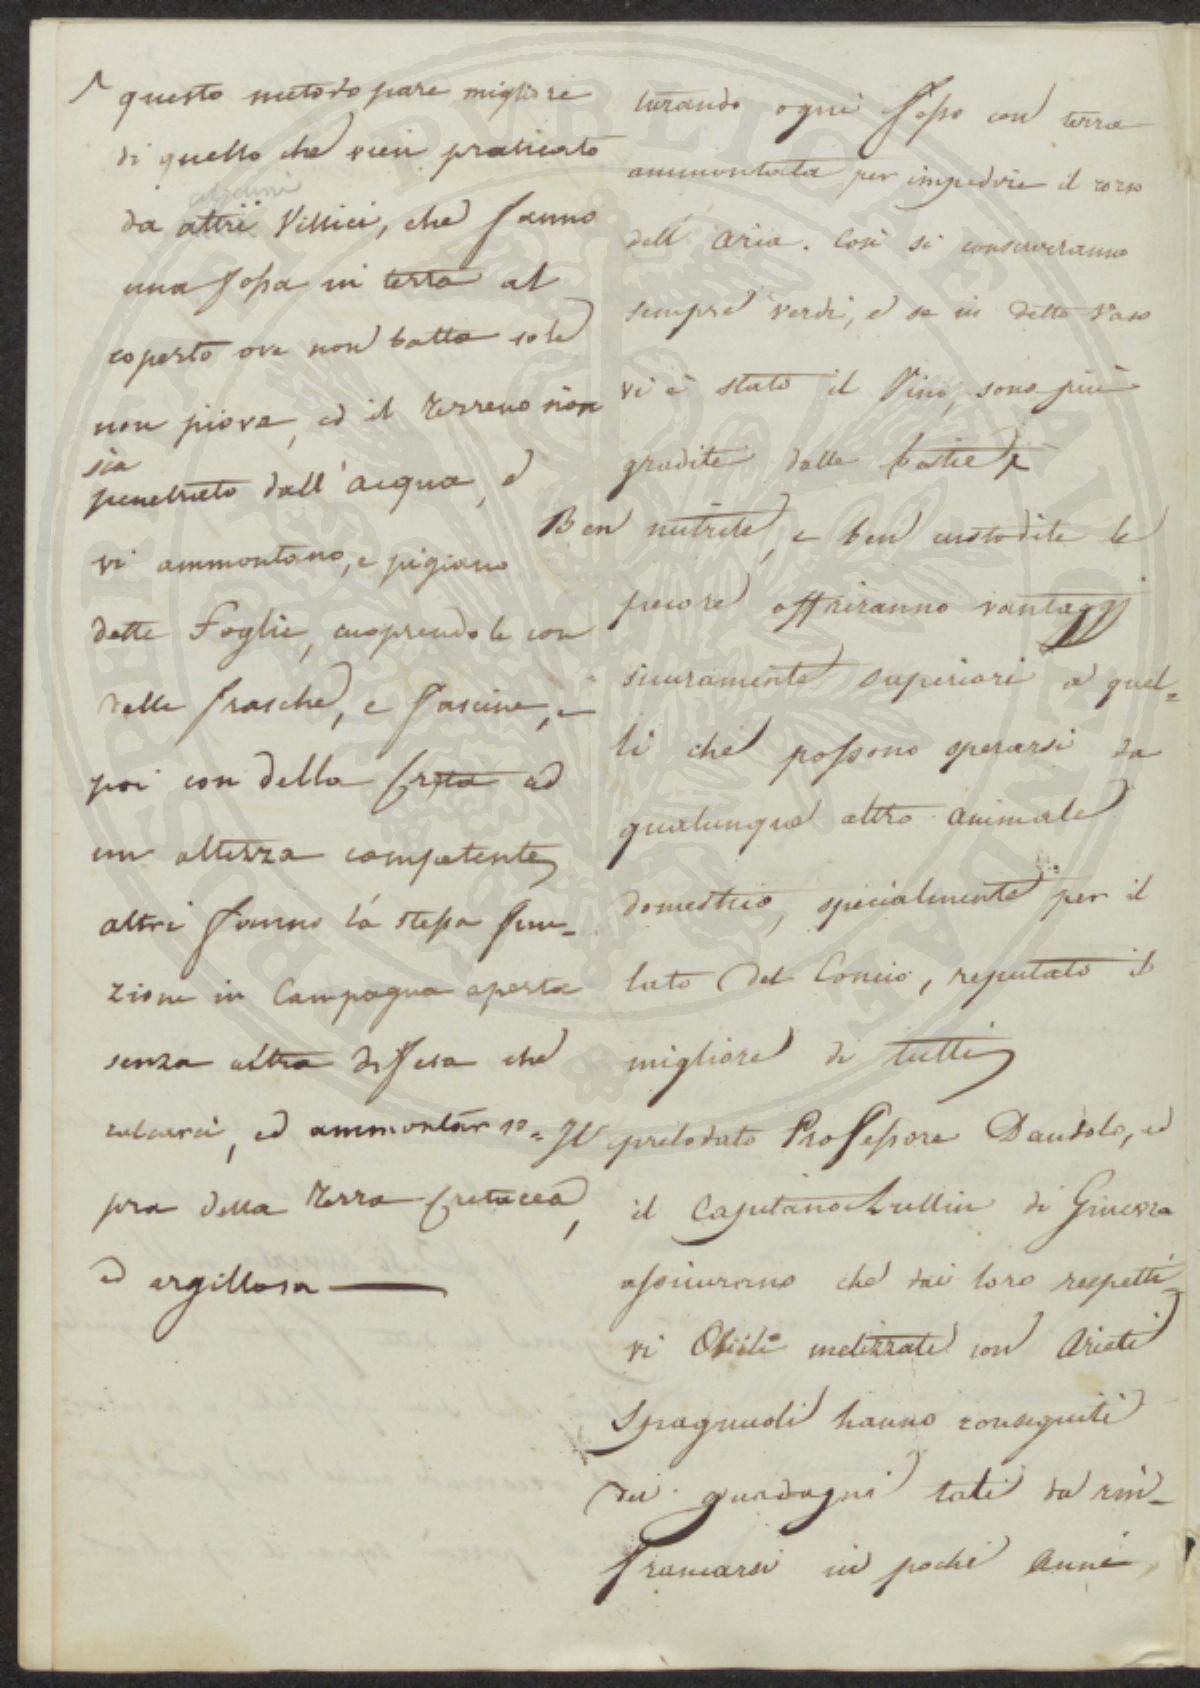 questo metodo pare migliore
di quello che vien praticato
alcuni
da altri Villici, che fanno
una fossa in terra al
coperto ove non batta sole
non piova, ed il Terreno non
sia
penetrato dall'acqua, e
vi ammontano, e pigiano
dette Foglie, cuoprendole con
delle frasche, e fascine, e
poi con della Creta ad
un altezza competente
altri fanno la stessa fun-
zione in Campagna aperta
senza altra difesa che
calcarci, ed ammontar so-
pra della Terra Cretacea,
ed argillosa
turando ogni fesso con terra
ammontata per impedire il corso
dell'aria. Così si conserveranno
sempre verdi, e se in detto Vaso
vi è stato il Vino, sono più
gradite dalle bestie
Ben nutrite, e ben custodite le
pecore offriranno vantaggj
sicuramente superiori a quel-
li che possono sperarsi da
qualunque altro animale
domestico, specialmente per il
lato del Concio, reputato il
migliore di tutti
Il prelodato Professore Dandolo, ed
il Capitano Lullin di Ginevra
assicurano che dai loro respetti-
vi Ovili metizzati con Arieti
Spagnuoli hanno conseguiti
dei guadagni tali da rin-
francarsi in pochi anni